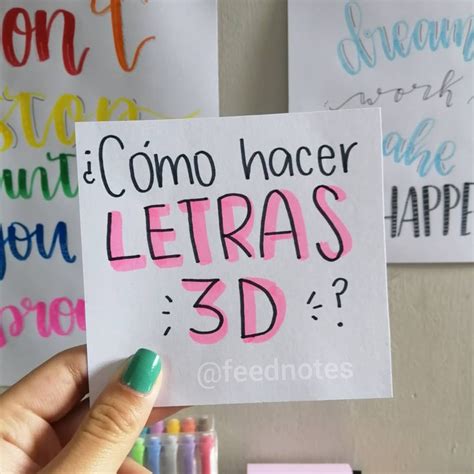 ¿Cómo hacer
LETRAS
3D ?
@feednotes
on't
stop
until
you
proud
dream
work
make
HAPPEN